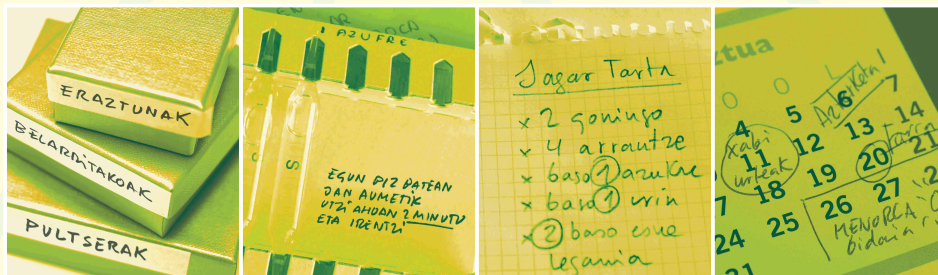 ERAZTUNAK
BELARRITAKOAK
PULTSERAK
AZUFRE
EGUN BIZ BATEAN
JAN AURRETIK
UTZI AHOAN 2 MINUTU
ETA IRENTZI
Sagar Tarta
x 2 goningo
x 4 arrautze
x baso 1 azukre
x baso 1 urin
x 2 baso esne
legamia
ztua
4 5 6 7
xabi
11 12 13 14
urteak
18 19 20 21
24 25 26 27
MENORCA
bidaia
31